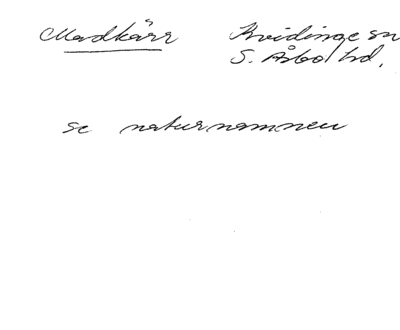 Madkärr Kvidinge sn
S. Åsbo hd.
se naturnamnen